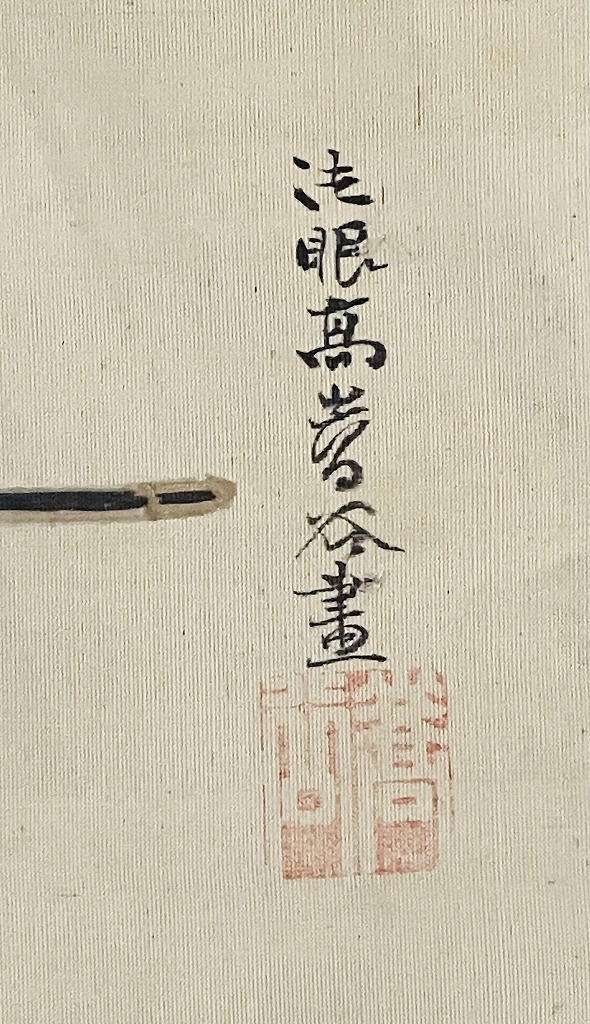 法眼高嵩谷畫